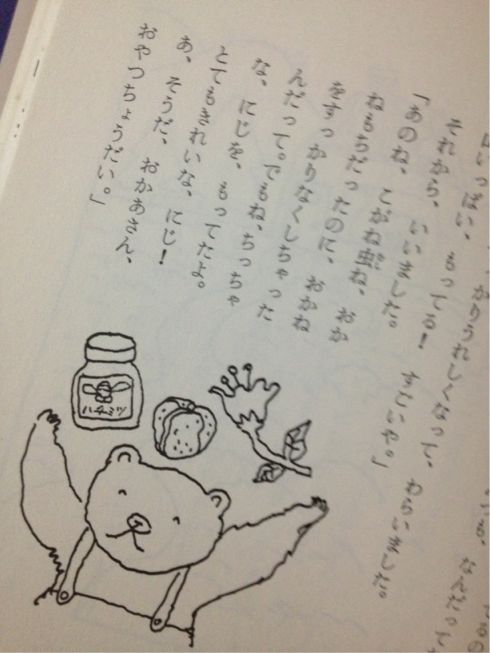 なんだって
かりうれしくなって、わらいました。
いっぱい、もってる！　すごいや。」
それから、いいました。
「あのね、こがね虫ね、おか
ねもちだったのに、おかね
をすっかりなくしちゃった
んだって。でもね、ちっちゃ
な、にじを、もってたよ。
とてもきれいな、にじ！
あ、そうだ、おかあさん、
おやつちょうだい。」
ハチミツ